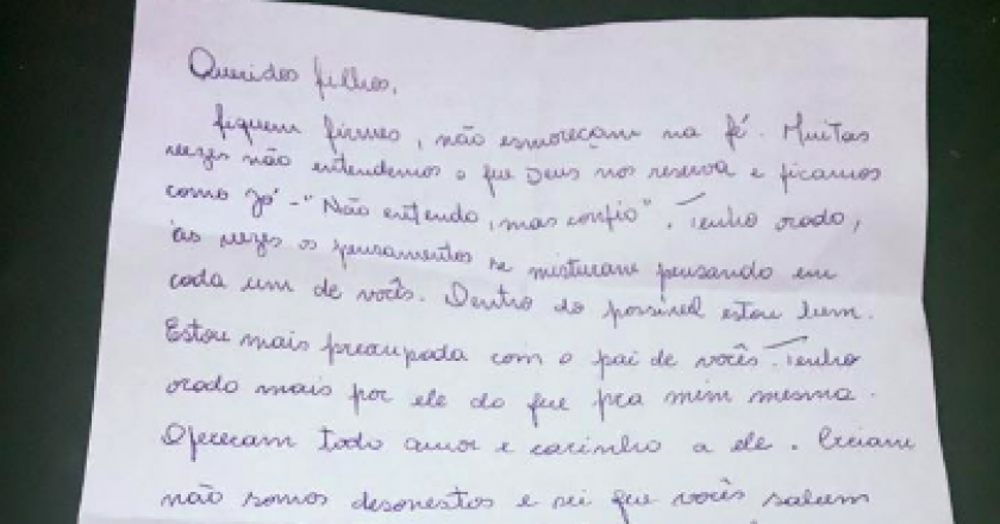 Queridos filhos,
fiquem firmes, não esmoreçam na fé. Muitas
vezes não entendemos o que Deus nos reserva e ficamos
como Jó - "Não entendo, mas confio". Tenho orado,
às vezes os pensamentos se misturam pensando em
cada um de vocês. Dentro do possível estou bem.
Estou mais preocupada com o pai de vocês. Tenho
orado mais por ele do que pra mim mesma.
Ofereçam todo amor e carinho a ele. Creiam
não somos desonestos e sei que vocês sabem